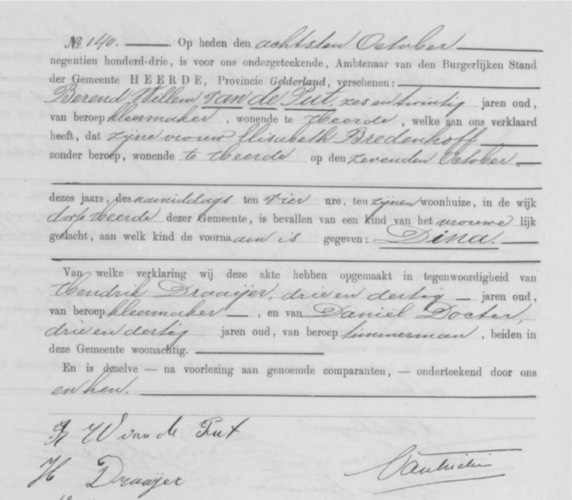 No. 140. Op heden den achtsten October
negentien honderd-drie, is voor ons ondergeteekende, Ambtenaar van den Burgerlijken Stand
der Gemeente HEERDE, Provincie Gelderland, verschenen:
Berend Willem van de Put, zes en twintig jaren oud,
van beroep kleermaker, wonende te Heerde, welke aan ons verklaard
heeft, dat zijne vrouw Elisabeth Bredenhoff
zonder beroep, wonende te Heerde op den zevenden October
dezes jaars, des namiddags ten vier ure, ten zijnen woonhuize, in de wijk
dorp Heerde dezer Gemeente, is bevallen van een kind van het vrouwelijk
geslacht, aan welk kind de voornaam is gegeven: Dina.
Van welke verklaring wij deze akte hebben opgemaakt in tegenwoordigheid van
Hendrik Draaijer, drie en dertig jaren oud,
van beroep kleermaker, en van Daniël Docter,
drie en dertig jaren oud, van beroep timmerman, beiden in
deze Gemeente woonachtig.
En is dezelve — na voorlezing aan genoemde comparanten, — onderteekend door ons
en hen.
B W van de Put
H Draaijer